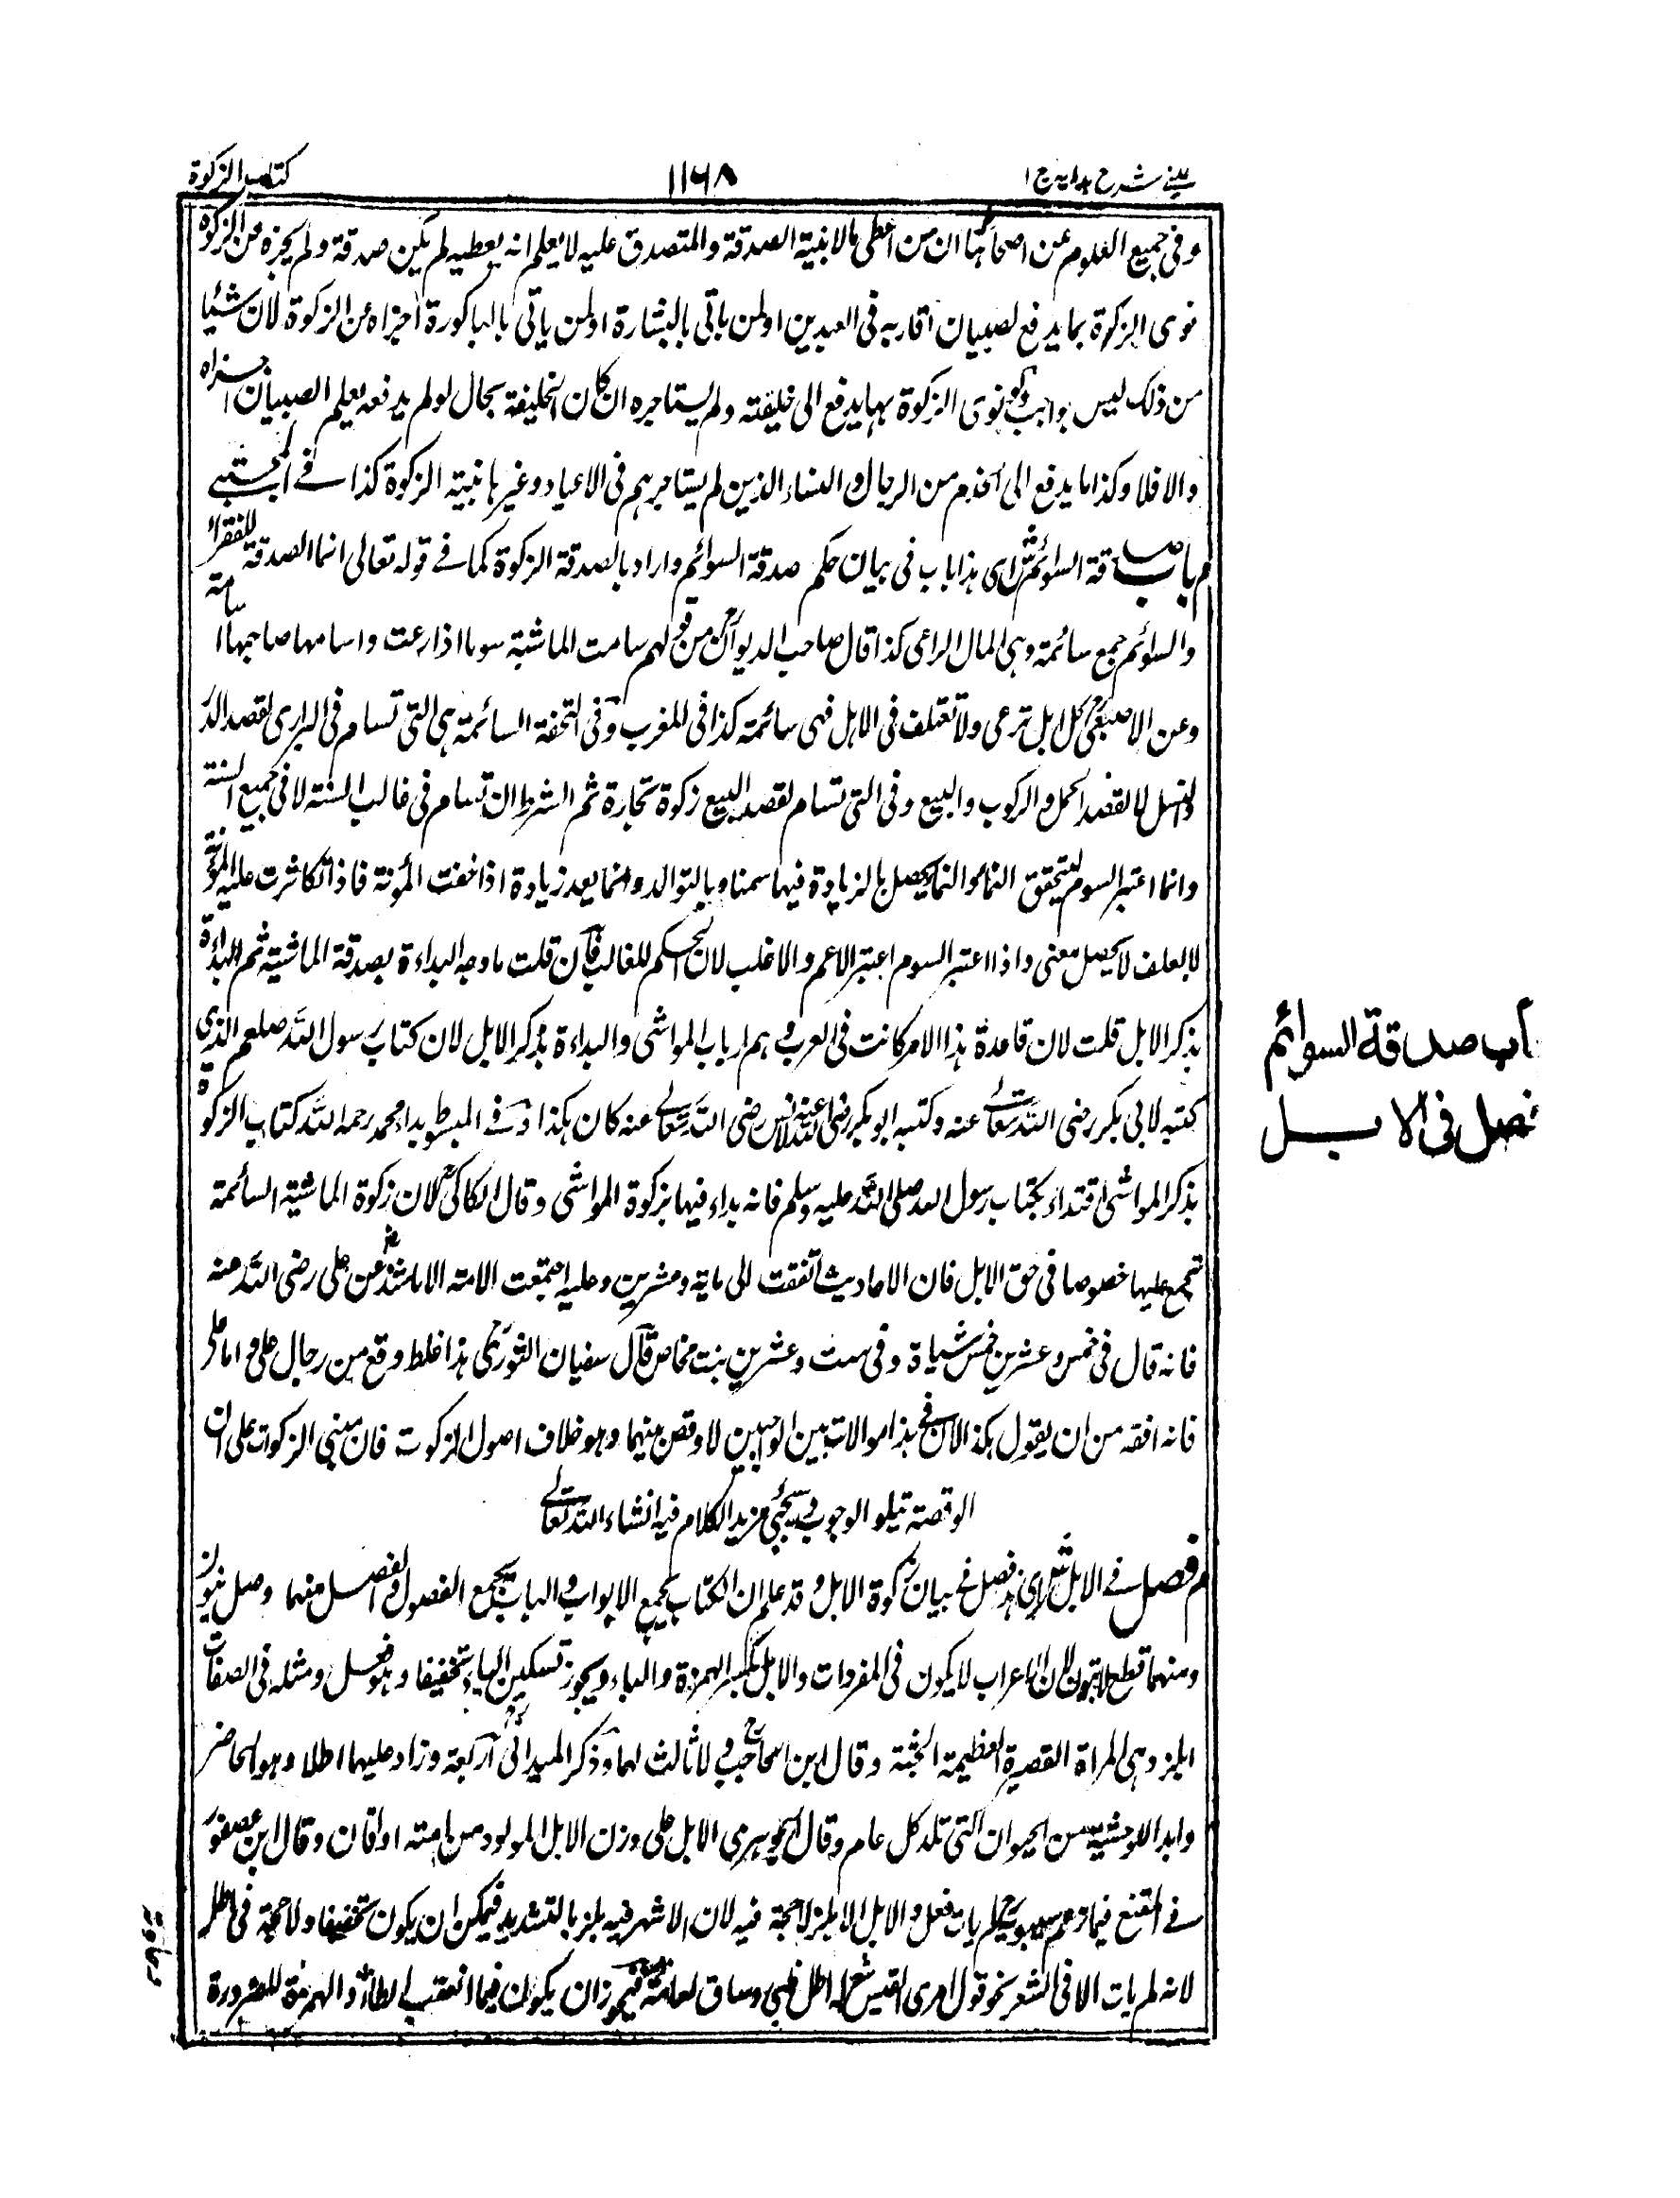 عینی شرح ہدایہ ج ۱
۱۱۶۸
کتاب الزکوۃ
وفی جمیع العلوم عن اصحابنا ان من اعطی مالا بنیة الصدقة والمتصدق علیه لا یعلم انه یعطیه لم یکن صدقة ولم یجزه من الزکوة
نوی الزکوة بما یدفع لصبیان اقاربه فی العیدین اولمن یاتی بالبشارة اولمن یاتی بالباکورة اجزاه عن الزکوة لان شیئا
من ذلک لیس بواجب ولو نوی الزکوة بہا یدفع الی خلیفته ولم یستاجره ان کان الخلیفة بحال لو لم یدفعه یعلم الصبیان اجزاه
والا فلا وکذا ما یدفع الی الخدم من الرجال والنساء الذین لم یستاجرہم فی الاعیاد وغیرہا بنیة الزکوة کذا فے المجتبے
م باب صدقة السوائم ش ای ہذا باب فی بیان حکم صدقة السوائم واراد بالصدقة الزکوة کما فے قوله تعالی انما الصدقة للفقراء
والسوائم جمع سائمة وہی المال الراعی کذا قال صاحب الدیوان من قولہم سامت الماشیة سوما اذا رعت واسامہا صاحبہا اسامة
وعن الاصمعی کل ابل ترعی ولا تعتلف فی الاہل فہی سائمة کذا فی المغرب وفی التحفة السائمة ہی التی تسام فی البراری لقصد الدر
والنسل لا لقصد الحمل والرکوب والبیع وفی التی تسام لقصد البیع زکوة تجارة ثم الشرط ان تسام فی غالب السنة لا فی جمیع السنة
وانما اعتبر السوم لیتحقق النماء والنماء یحصل بالزیادة فیہا سمنا وبالتوالد وانما یعد زیادة اذا خفت المؤنة فاذا تکاثرت علیه المؤنة
لا بعلف لا یحصل معنی واذا اعتبر السوم اعتبر الاعم والاغلب لان الحکم للغالب فان قلت ما وجه البداءة بصدقة الماشیة ثم البداءة
بذکر الابل قلت لان قاعدة ہذا الامر کانت فی العرب وہم ارباب المواشی والبداءة بذکر الابل لان کتاب رسول الله صلعم الذی
کتبه لابی بکر رضی الله تعالے عنه وکتبه ابو بکر رضی الله عنه لانس رضی الله تعالے عنه کان ہکذا وفے المبسوط بداء محمد رحمه الله کتاب الزکوة
بذکر المواشی اقتداء بکتاب رسول الله صلی الله علیه وسلم فانه بداء فیہا بزکوة المواشی وقال الکاکی لان زکوة الماشیة السائمة
مجمع علیہا خصوصا فی حق الابل فان الاحادیث اتفقت الی مایة وعشرین وعلیه اجتمعت الامة الا ما شذ عن علی رضی الله عنه
فانه قال فی خمس وعشرین خمس شیاة وفی ست وعشرین بنت مخاض قال سفیان الثوری ہذا غلط وقع من رجال علی اما علی
فانه افقه من ان یقول ہکذا لان فی ہذا موالات بین الواجبین لا وقص بینہما وہو خلاف اصول الزکوت فان مبنی الزکوات علی ان
الوقصة تیلو الوجوب وسیجئی مزید الکلام فیه انشاء الله تعالے
م فصل فے الابل ش ای ہذا فصل فے بیان زکوة الابل وقد علم ان الکتاب یجمع الابواب والباب یجمع الفصول والفصل مہما وصل ینون
ومہما قطع لا ینون لان الاعراب لا یکون فی المفردات والابل بکسر الہمزة والباء ویجوز تسکین الباء تخفیفا وہو فعل ومثله فی الصفات
ابلز وہی المراة القصیرة العظیمة الجثة وقال ابن الحاجب ولا ثالث لہما وذکر المیدانی اربعة وزاد علیہما اطلا وہو الحاضر
وابدا الاوحشیة من الحیوان التی تلد کل عام وقال الجوہری الابل علی وزن الابل المولود من امة او اتان وقال ابن عصفور
فے المقنع فیما زعم سیبویه لم یات فعل الا ابل الا بلز لا حجة فیه لان الاشہر فیه بلز بالتشدید فیمکن ان یکون تخفیفا ولا حجة فی اطل
لانه لم یات الا فی الشعر نحو قول امری القیس شعر له اطل ظبی وساق نعامة فیجوزان یکون فیما اتعقب الطاء والہمزة للضرورة
باب صدقة السوائم
فصل فی الابل